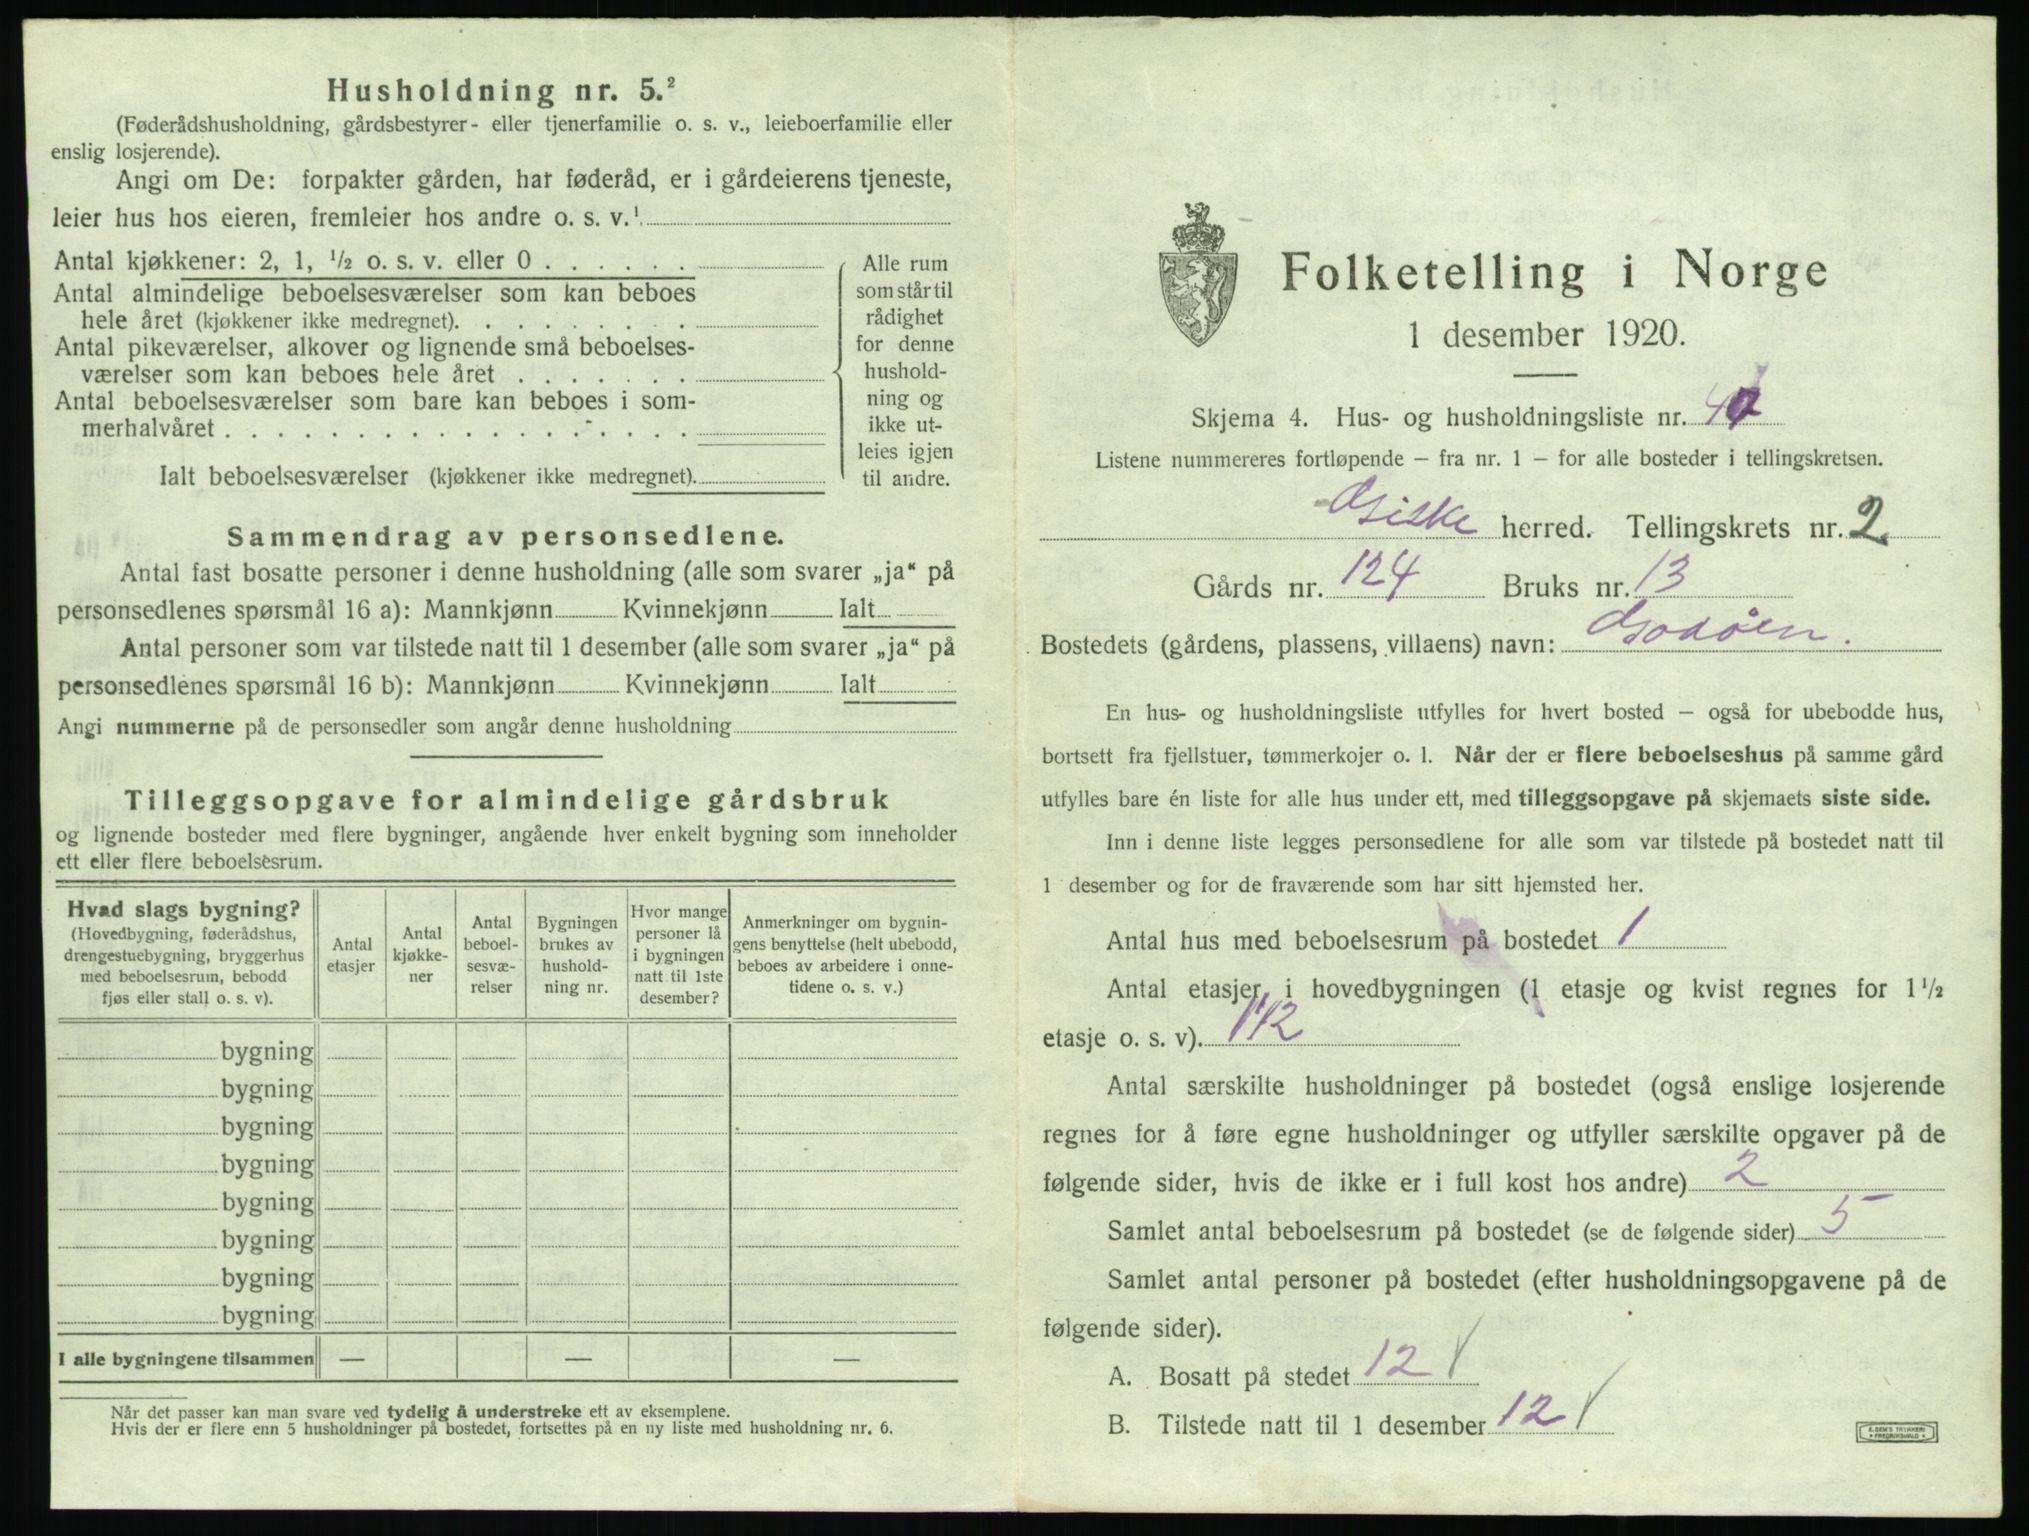 Husholdning nr. 5.²
(Føderådshusholdning, gårdsbestyrer- eller tjenerfamilie o. s. v., leieboerfamilie eller
enslig losjerende).
Angi om De: forpakter gården, har føderåd, er i gårdeierens tjeneste,
leier hus hos eieren, fremleier hos andre o. s. v.¹
Antal kjøkkener: 2, 1, ½ o. s. v. eller 0 . . . . . .
Antal almindelige beboelsesværelser som kan beboes
hele året (kjøkkener ikke medregnet). . . . . . . . .
Antal pikeværelser, alkover og lignende små beboelses-
værelser som kan beboes hele året . . . . . . .
Antal beboelsesværelser som bare kan beboes i som-
merhalvåret . . . . . . . . . . . . . . . . . .
Ialt beboelsesværelser (kjøkkener ikke medregnet).
Alle rum
som står til
rådighet
for denne
hushold-
ning og
ikke ut-
leies igjen
til andre.
Sammendrag av personsedlene.
Antal fast bosatte personer i denne husholdning (alle som svarer „ja“ på
personsedlenes spørsmål 16 a): Mannkjønn Kvinnekjønn Ialt
Antal personer som var tilstede natt til 1 desember (alle som svarer „ja“ på
personsedlenes spørsmål 16 b): Mannkjønn Kvinnekjønn Ialt
Angi nummerne på de personsedler som angår denne husholdning
Tilleggsopgave for almindelige gårdsbruk
og lignende bosteder med flere bygninger, angående hver enkelt bygning som inneholder
ett eller flere beboelsesrum.
Hvad slags bygning?
(Hovedbygning, føderådshus,
drengestuebygning, bryggerhus
med beboelsesrum, bebodd
fjøs eller stall o. s. v).
Antal
etasjer
Antal
kjøkke-
ner
Antal
beboel-
sesvæ-
relser
Bygningen
brukes av
hushold-
ning nr.
Hvor mange
personer lå
i bygningen
natt til 1ste
desember?
Anmerkninger om bygnin-
gens benyttelse (helt ubebodd,
beboes av arbeidere i onne-
tidene o. s. v.)
bygning
bygning
bygning
bygning
bygning
bygning
bygning
bygning
I alle bygningene tilsammen — — —
Når det passer kan man svare ved tydelig å understreke ett av eksemplene.
Hvis der er flere enn 5 husholdninger på bostedet, fortsettes på en ny liste med husholdning nr. 6.
Folketelling i Norge
1 desember 1920.
Skjema 4. Hus- og husholdningsliste nr.
Listene nummereres fortløpende — fra nr. 1 — for alle bosteder i tellingskretsen.
Giske herred. Tellingskrets nr. 2
Gårds nr. 124 Bruks nr. 13
Bostedets (gårdens, plassens, villaens) navn: Godøen.
En hus- og husholdningsliste utfylles for hvert bosted — også for ubebodde hus,
bortsett fra fjellstuer, tømmerkojer o. l. Når der er flere beboelseshus på samme gård
utfylles bare én liste for alle hus under ett, med tilleggsopgave på skjemaets siste side.
Inn i denne liste legges personsedlene for alle som var tilstede på bostedet natt til
1 desember og for de fraværende som har sitt hjemsted her.
Antal hus med beboelsesrum på bostedet 1
Antal etasjer i hovedbygningen (1 etasje og kvist regnes for 1½
etasje o. s. v). 1 1/2
Antal særskilte husholdninger på bostedet (også enslige losjerende
regnes for å føre egne husholdninger og utfyller særskilte opgaver på de
følgende sider, hvis de ikke er i full kost hos andre) 2
Samlet antal beboelsesrum på bostedet (se de følgende sider) 5
Samlet antal personer på bostedet (efter husholdningsopgavene på de
følgende sider).
A. Bosatt på stedet 12
B. Tilstede natt til 1 desember 12